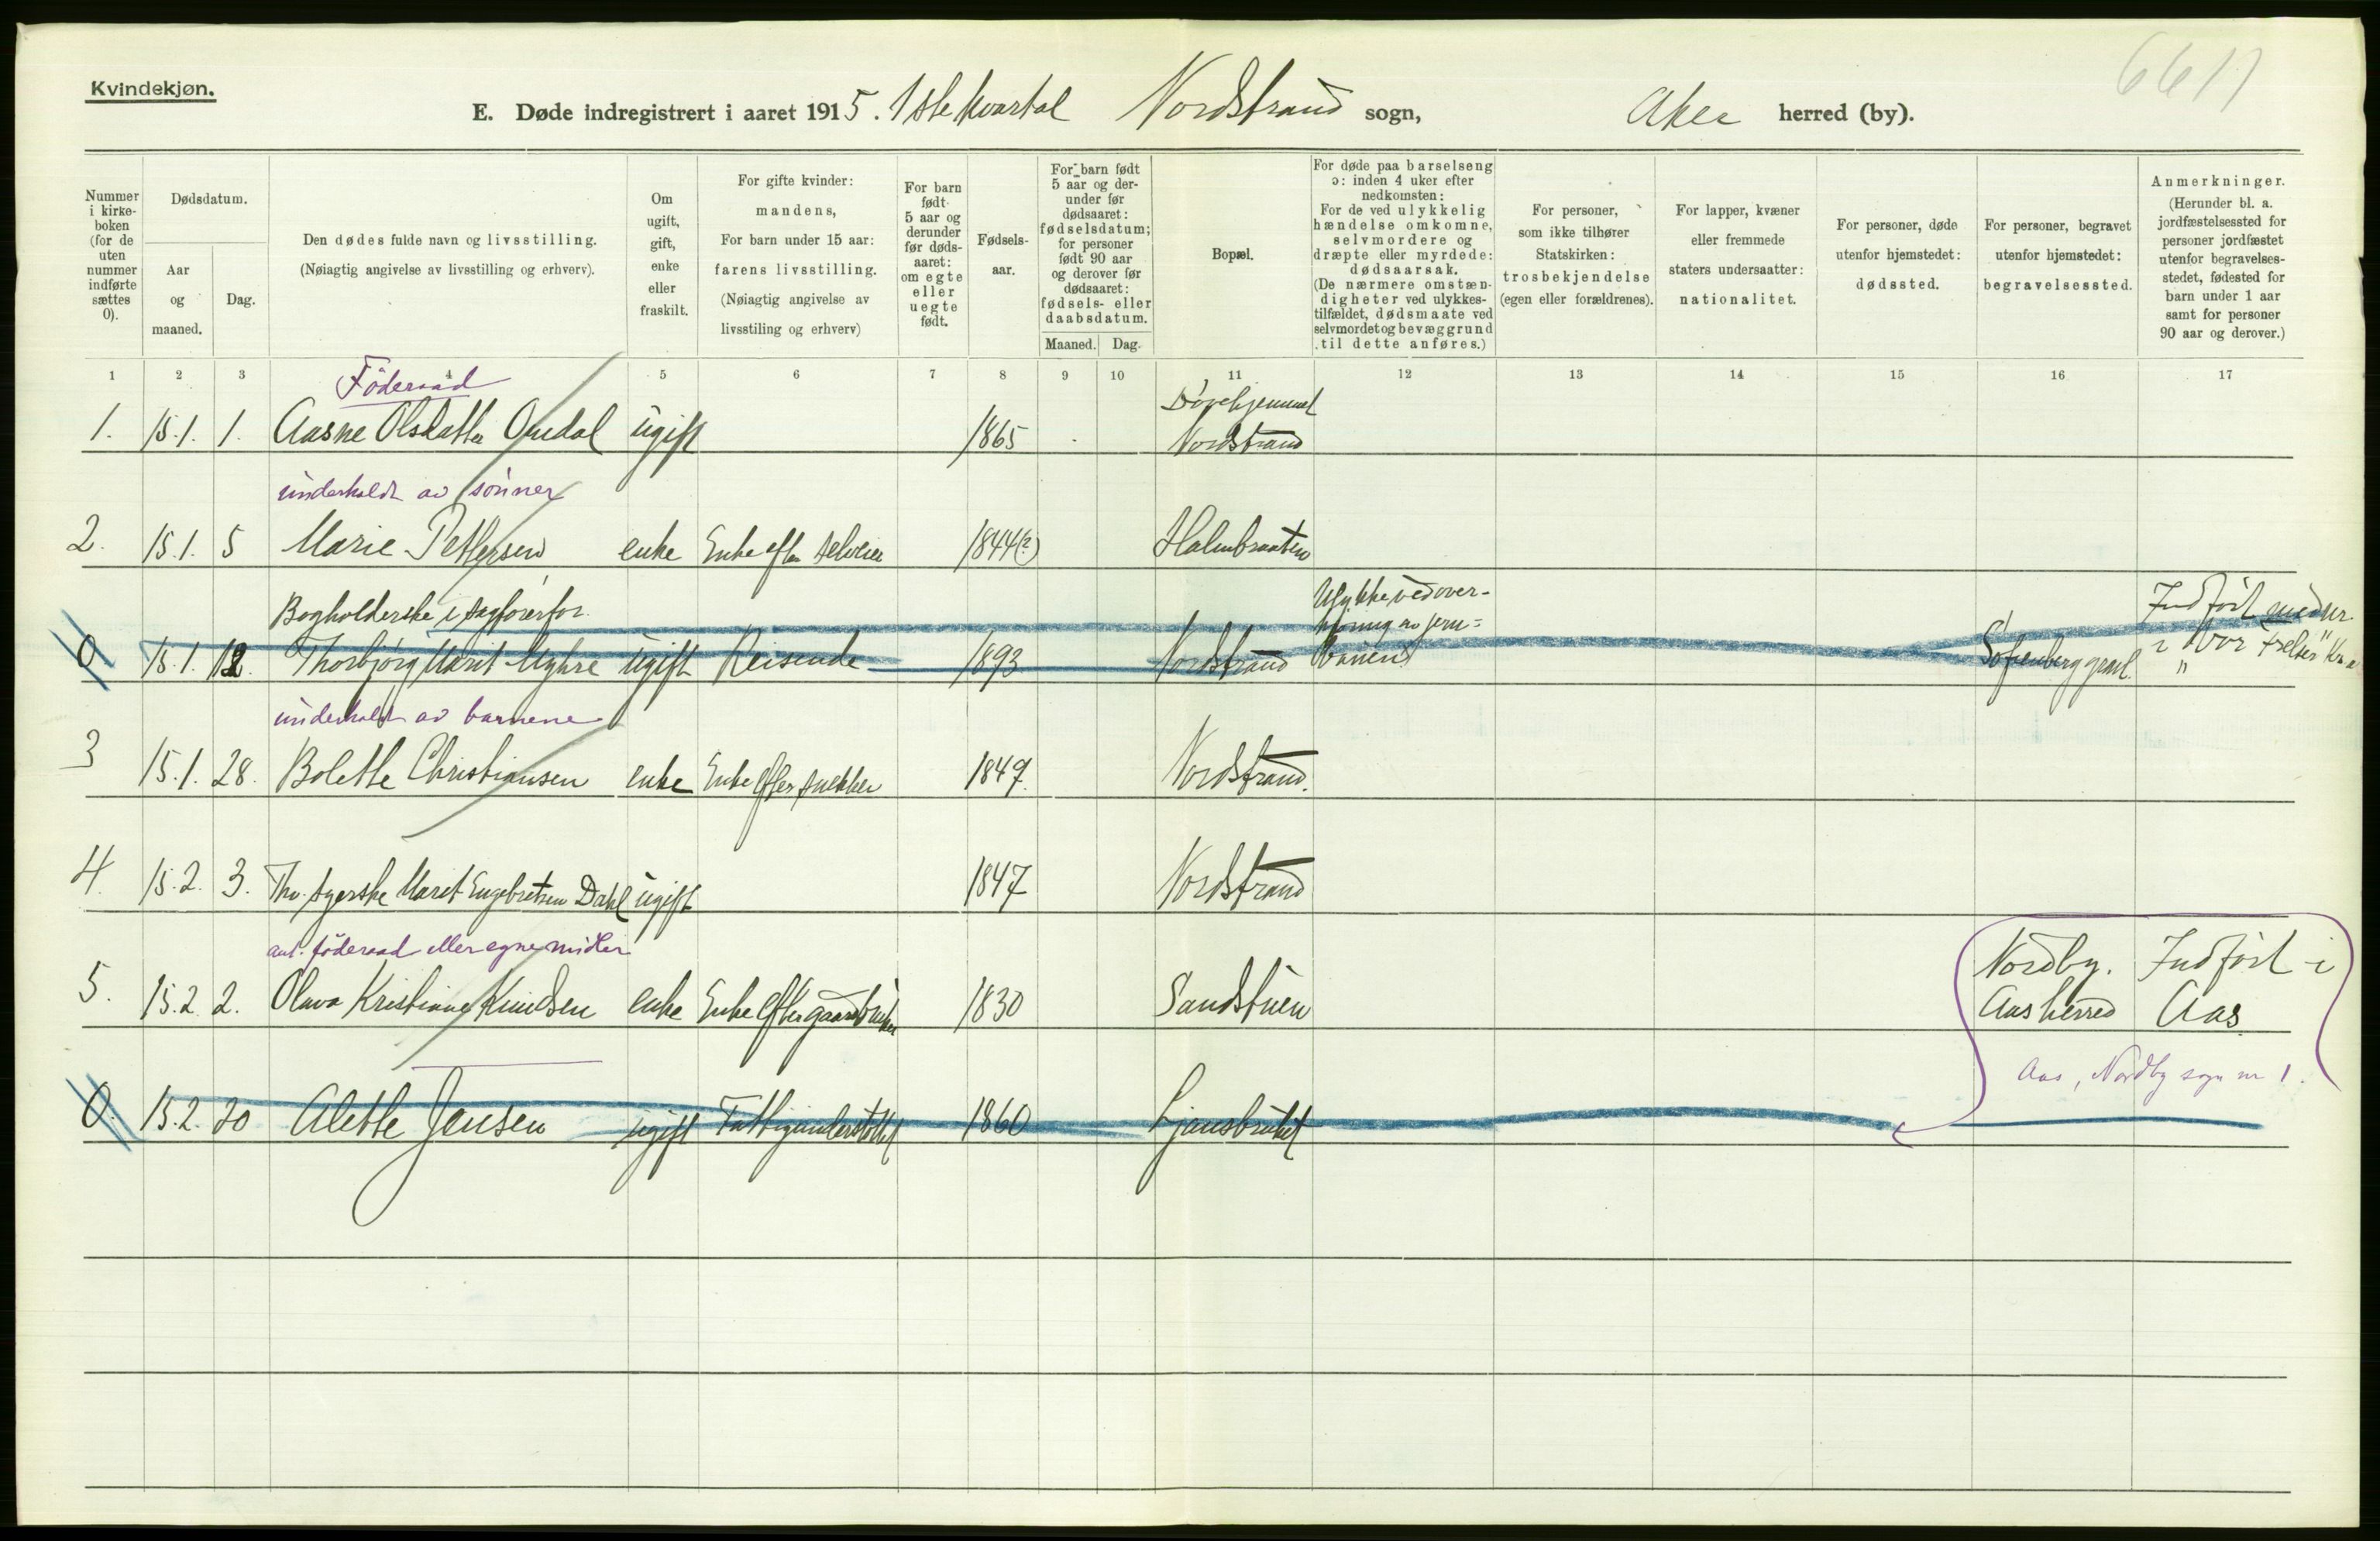 6611
Kvindekjøn.
E. Døde indregistrert i aaret 1915. 1ste kvartal Nordstrand sogn, Aker herred (by).
Nummer i kirke-boken (for de uten nummer indførte sættes 0).
Dødsdatum.
Aar og maaned.
Dag.
Den dødes fulde navn og livsstilling.
(Nøiagtig angivelse av livsstilling og erhverv).
Om ugift, gift, enke eller fraskilt.
For gifte kvinder: mandens,
For barn under 15 aar: farens livsstilling.
(Nøiagtig angivelse av livsstiling og erhverv)
For barn født 5 aar og derunder før døds-aaret: om egte eller uegte født.
Fødsels-aar.
For barn født 5 aar og der-under før dødsaaret: fødselsdatum; for personer født 90 aar og derover før dødsaaret: fødsels- eller daabsdatum.
Maaned. Dag.
Bopæl.
For døde paa barselseng ɔ: inden 4 uker efter nedkomsten:
For de ved ulykkelig hændelse omkomne, selvmordere og dræpte eller myrdede: dødsaarsak.
(De nærmere omstæn-digheter ved ulykkes-tilfældet, dødsmaate ved selvmordet og bevæggrund til dette anføres.)
For personer, som ikke tilhører Statskirken: trosbekjendelse (egen eller forældrenes).
For lapper, kvæner eller fremmede staters undersaatter: nationalitet.
For personer, døde utenfor hjemstedet: dødssted.
For personer, begravet utenfor hjemstedet: begravelsessted.
Anmerkninger.
(Herunder bl. a. jordfæstelsessted for personer jordfæstet utenfor begravelses-stedet, fødested for barn under 1 aar samt for personer 90 aar og derover.)
1 2 3 4 5 6 7 8 9 10 11 12 13 14 15 16 17
Föderaad
Døvehjemmet
1. 15.1. 1. Aasne Olsdatter Omdal ugift 1865 Nordstrand
underholdt av sönner
2. 15.1. 5 Marie Pettersen enke Enke efter selveier 1844(?) Holmbraaten
Bogholderske i sagförerfor. Ulykke ved over- Indført med nr.
kjöring av jern-
0 15.1. 12. Thorbjørg Marit Myhre ugift Reisende 1893 Nordstrand banen Sofienberg gravl. i "Vor Frelser" Kr.a
underholdt av barnene
3 15.1. 28. Bolette Christiansen enke Enke efter snekker 1849. Nordstrand.
4. 15.2. 3. Fhv. syerske Marit Engebretsen Dahl ugift 1847 Nordstrand
ant. föderaad eller egne midler Nordby. Indført i
5. 15.2 2. Olava Kristiane Knudsen enke Enke efter gaardbruker 1830 Sandstuen Aas herred Aas
Aas, Nordby sogn nr 1.
0. 15.2. 20 Alette Jensen ugift Fattigunderstøttet 1860 Ljansbruket